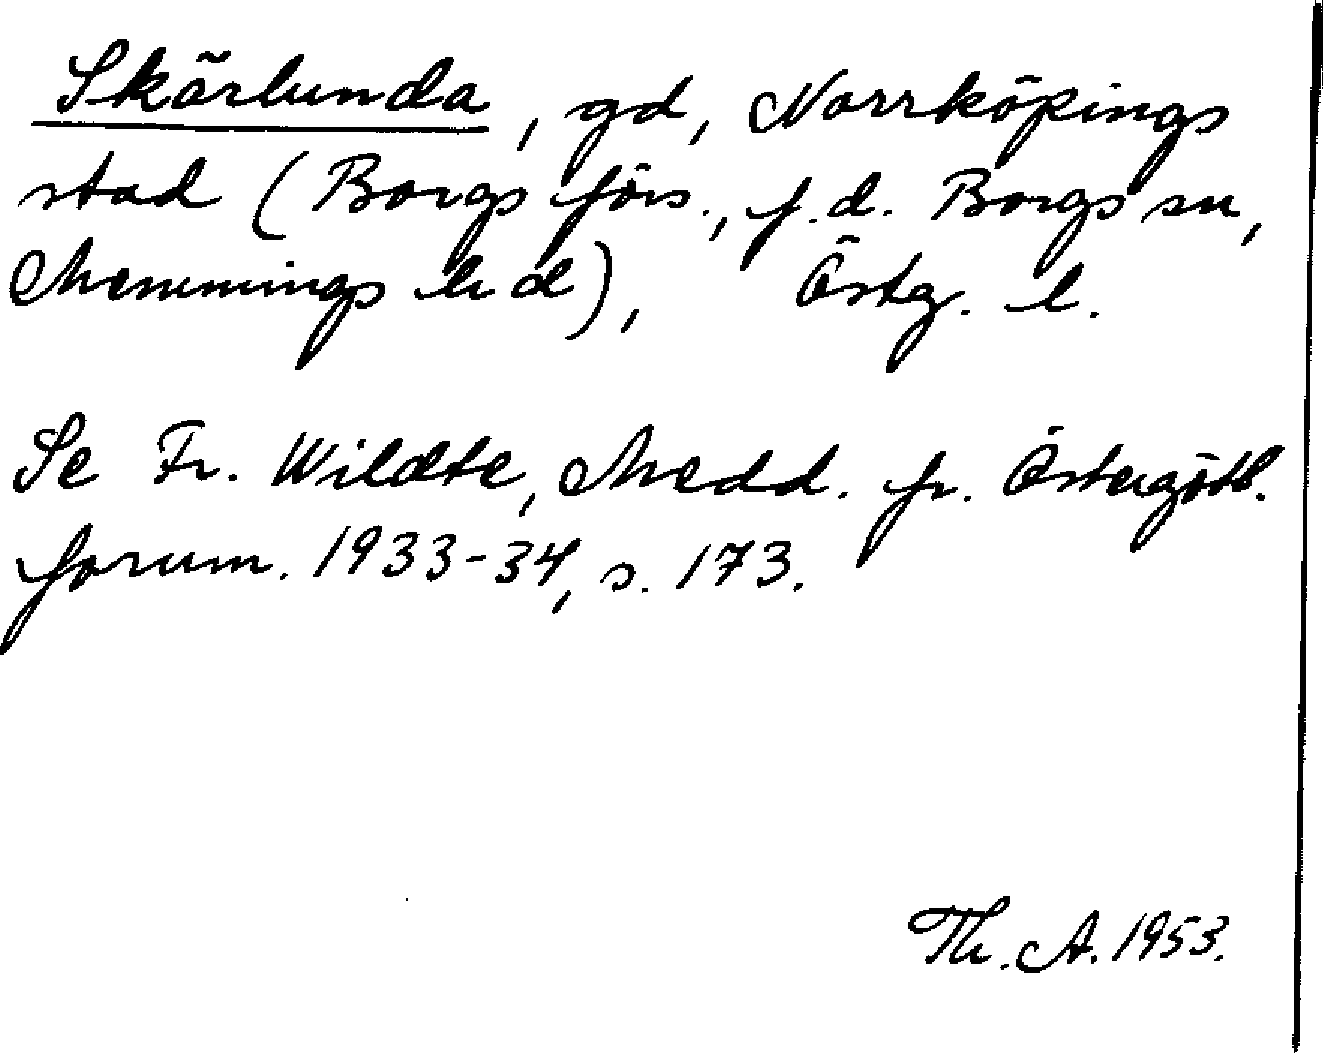 Skärlunda, gd, Norrköpings
stad (Borgs förs., f.d. Borgs sn,
Memmings hd), Östg. l.
Se Fr. Wildte, Medd. fr. Östergötl.
fornm. 1933-34, s. 173.
Th. A. 1953.